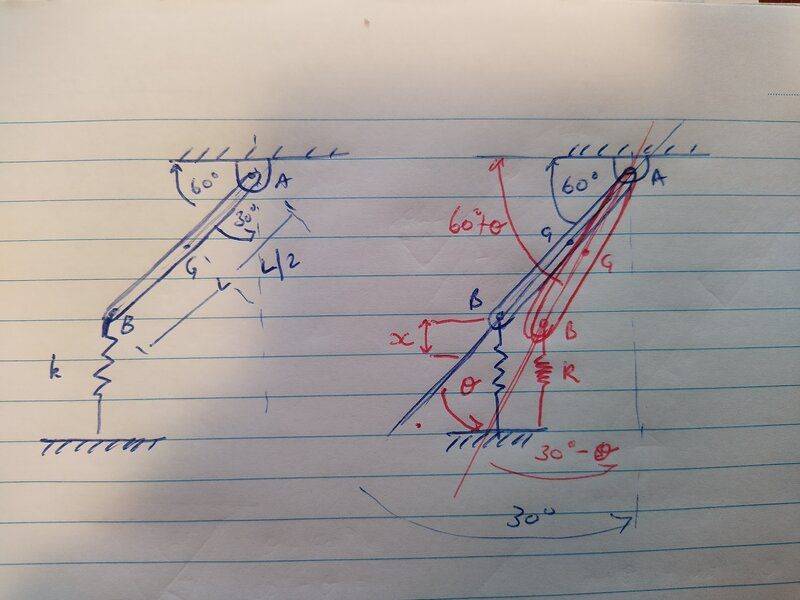 60° A
30°
G
L L/2
B
k
60° A
60°+θ
G
G
B
B
x
θ
k
30°-θ
30°